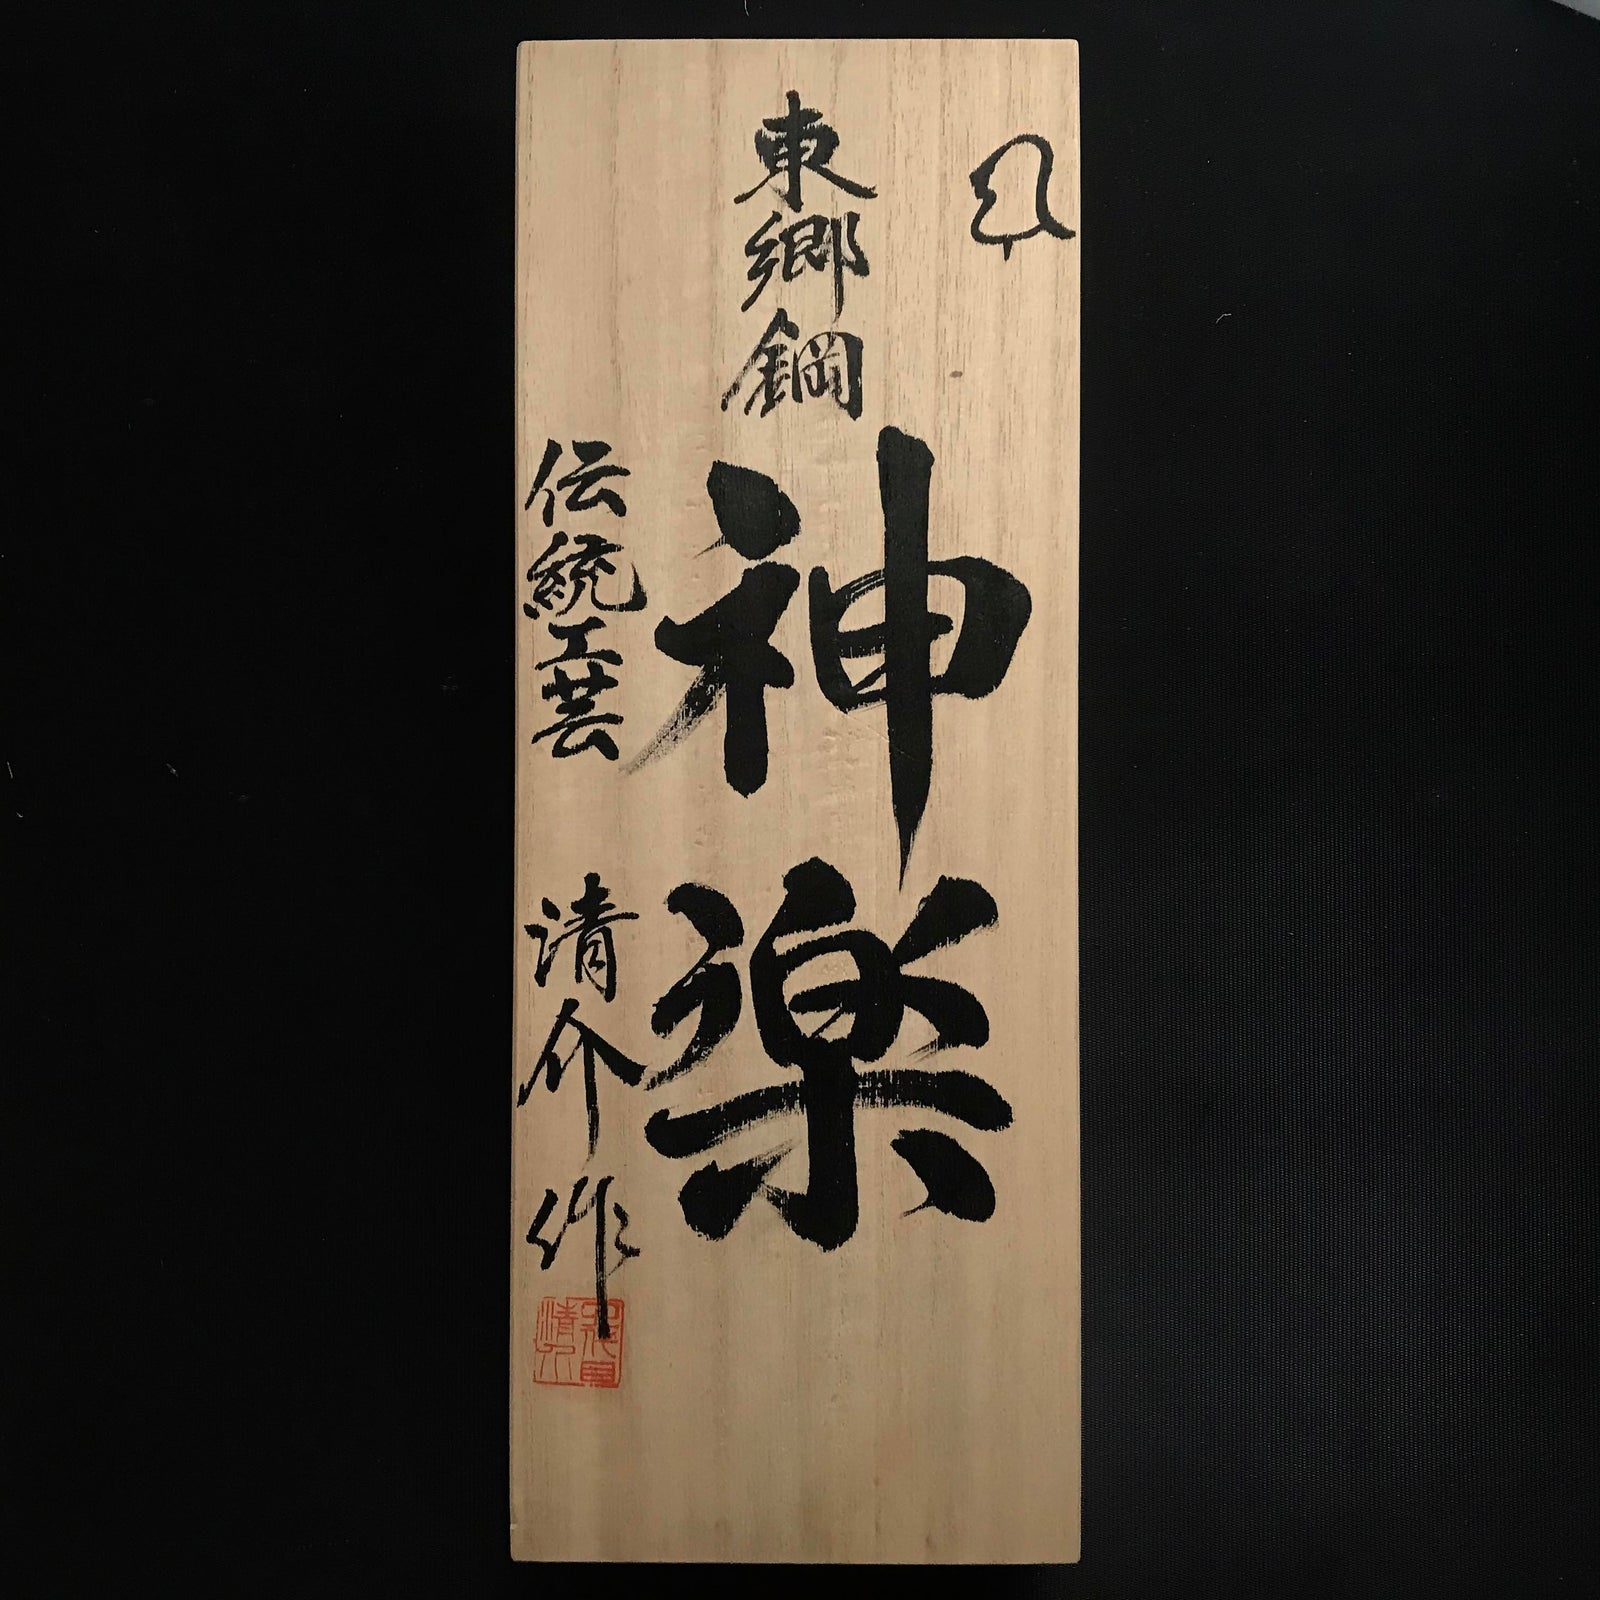 東郷鋼
神楽
伝統工芸
清介作